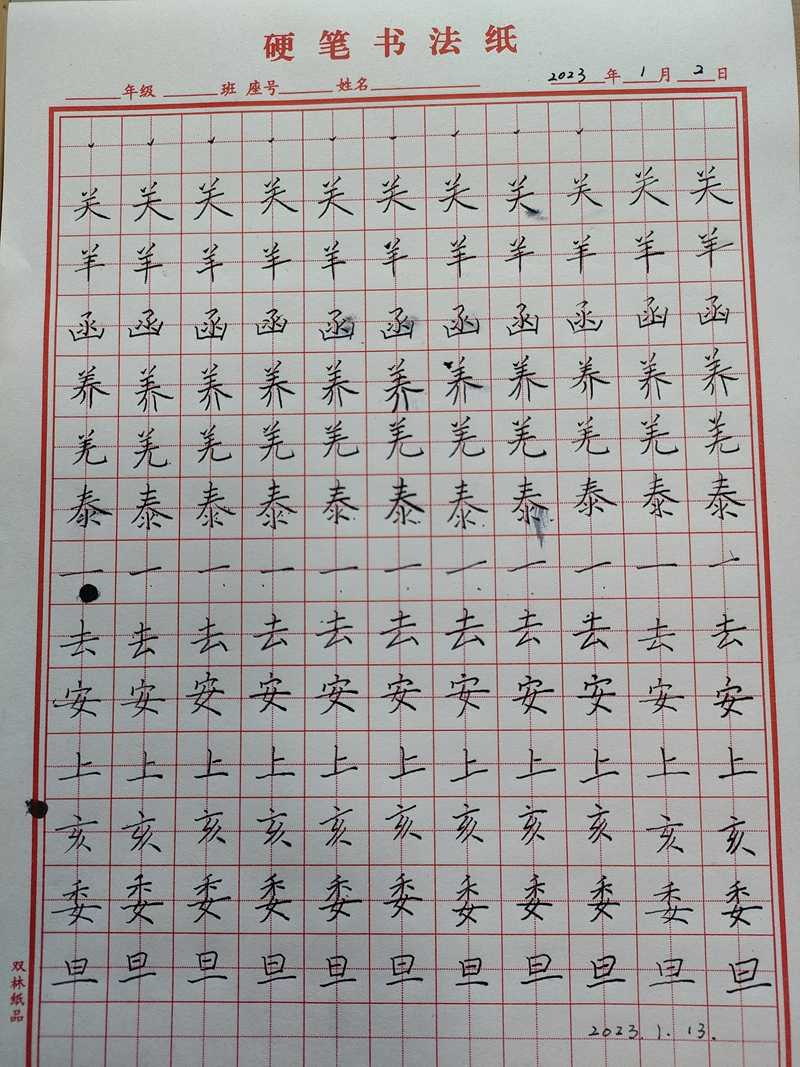 硬笔书法纸
年级 班 座号 姓名 2023 年 1 月 2 日
关 关 关 关 关 关 关 关 关 关 关
羊 羊 羊 羊 羊 羊 羊 羊 羊 羊 羊
函 函 函 函 函 函 函 函 函 函 函
养 养 养 养 养 养 养 养 养 养 养
羌 羌 羌 羌 羌 羌 羌 羌 羌 羌 羌
泰 泰 泰 泰 泰 泰 泰 泰 泰 泰 泰
一 一 一 一 一 一 一 一 一 一 一
去 去 去 去 去 去 去 去 去 去 去
安 安 安 安 安 安 安 安 安 安 安
上 上 上 上 上 上 上 上 上 上 上
亥 亥 亥 亥 亥 亥 亥 亥 亥 亥 亥
委 委 委 委 委 委 委 委 委 委 委
旦 旦 旦 旦 旦 旦 旦 旦 旦 旦 旦
双林纸品
2023.1.13.